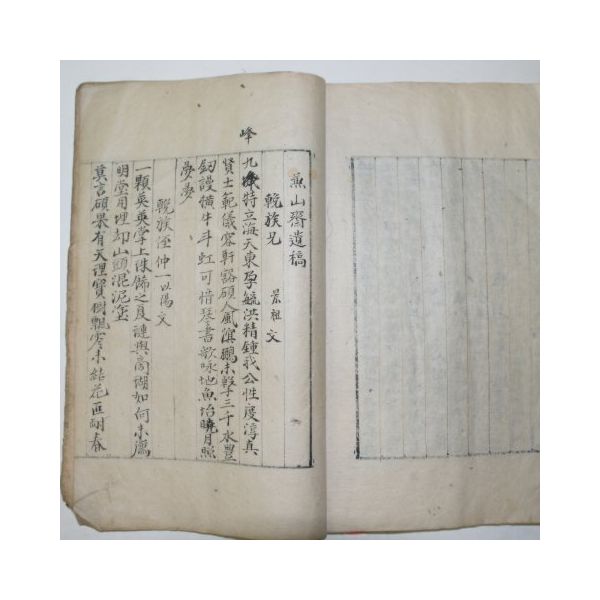 燕山齋遺稿
輓族兄 景祖文
峰
九峰特立海天東孕毓洪精鍾我公性度淳真
賢士範儀容軒豁碩人風鵬未擊三千水豊
釰謾橫牛斗虹可惜琴書歌咏地魚怡曉月照
夢夢
輓族侄仲一以陽文
一顆英英掌上珠飾之良璉與商瑚如何未薦
明堂用埋却山頭混泥塗
莫言碩果有天理寶樹飄零未結花叵耐春